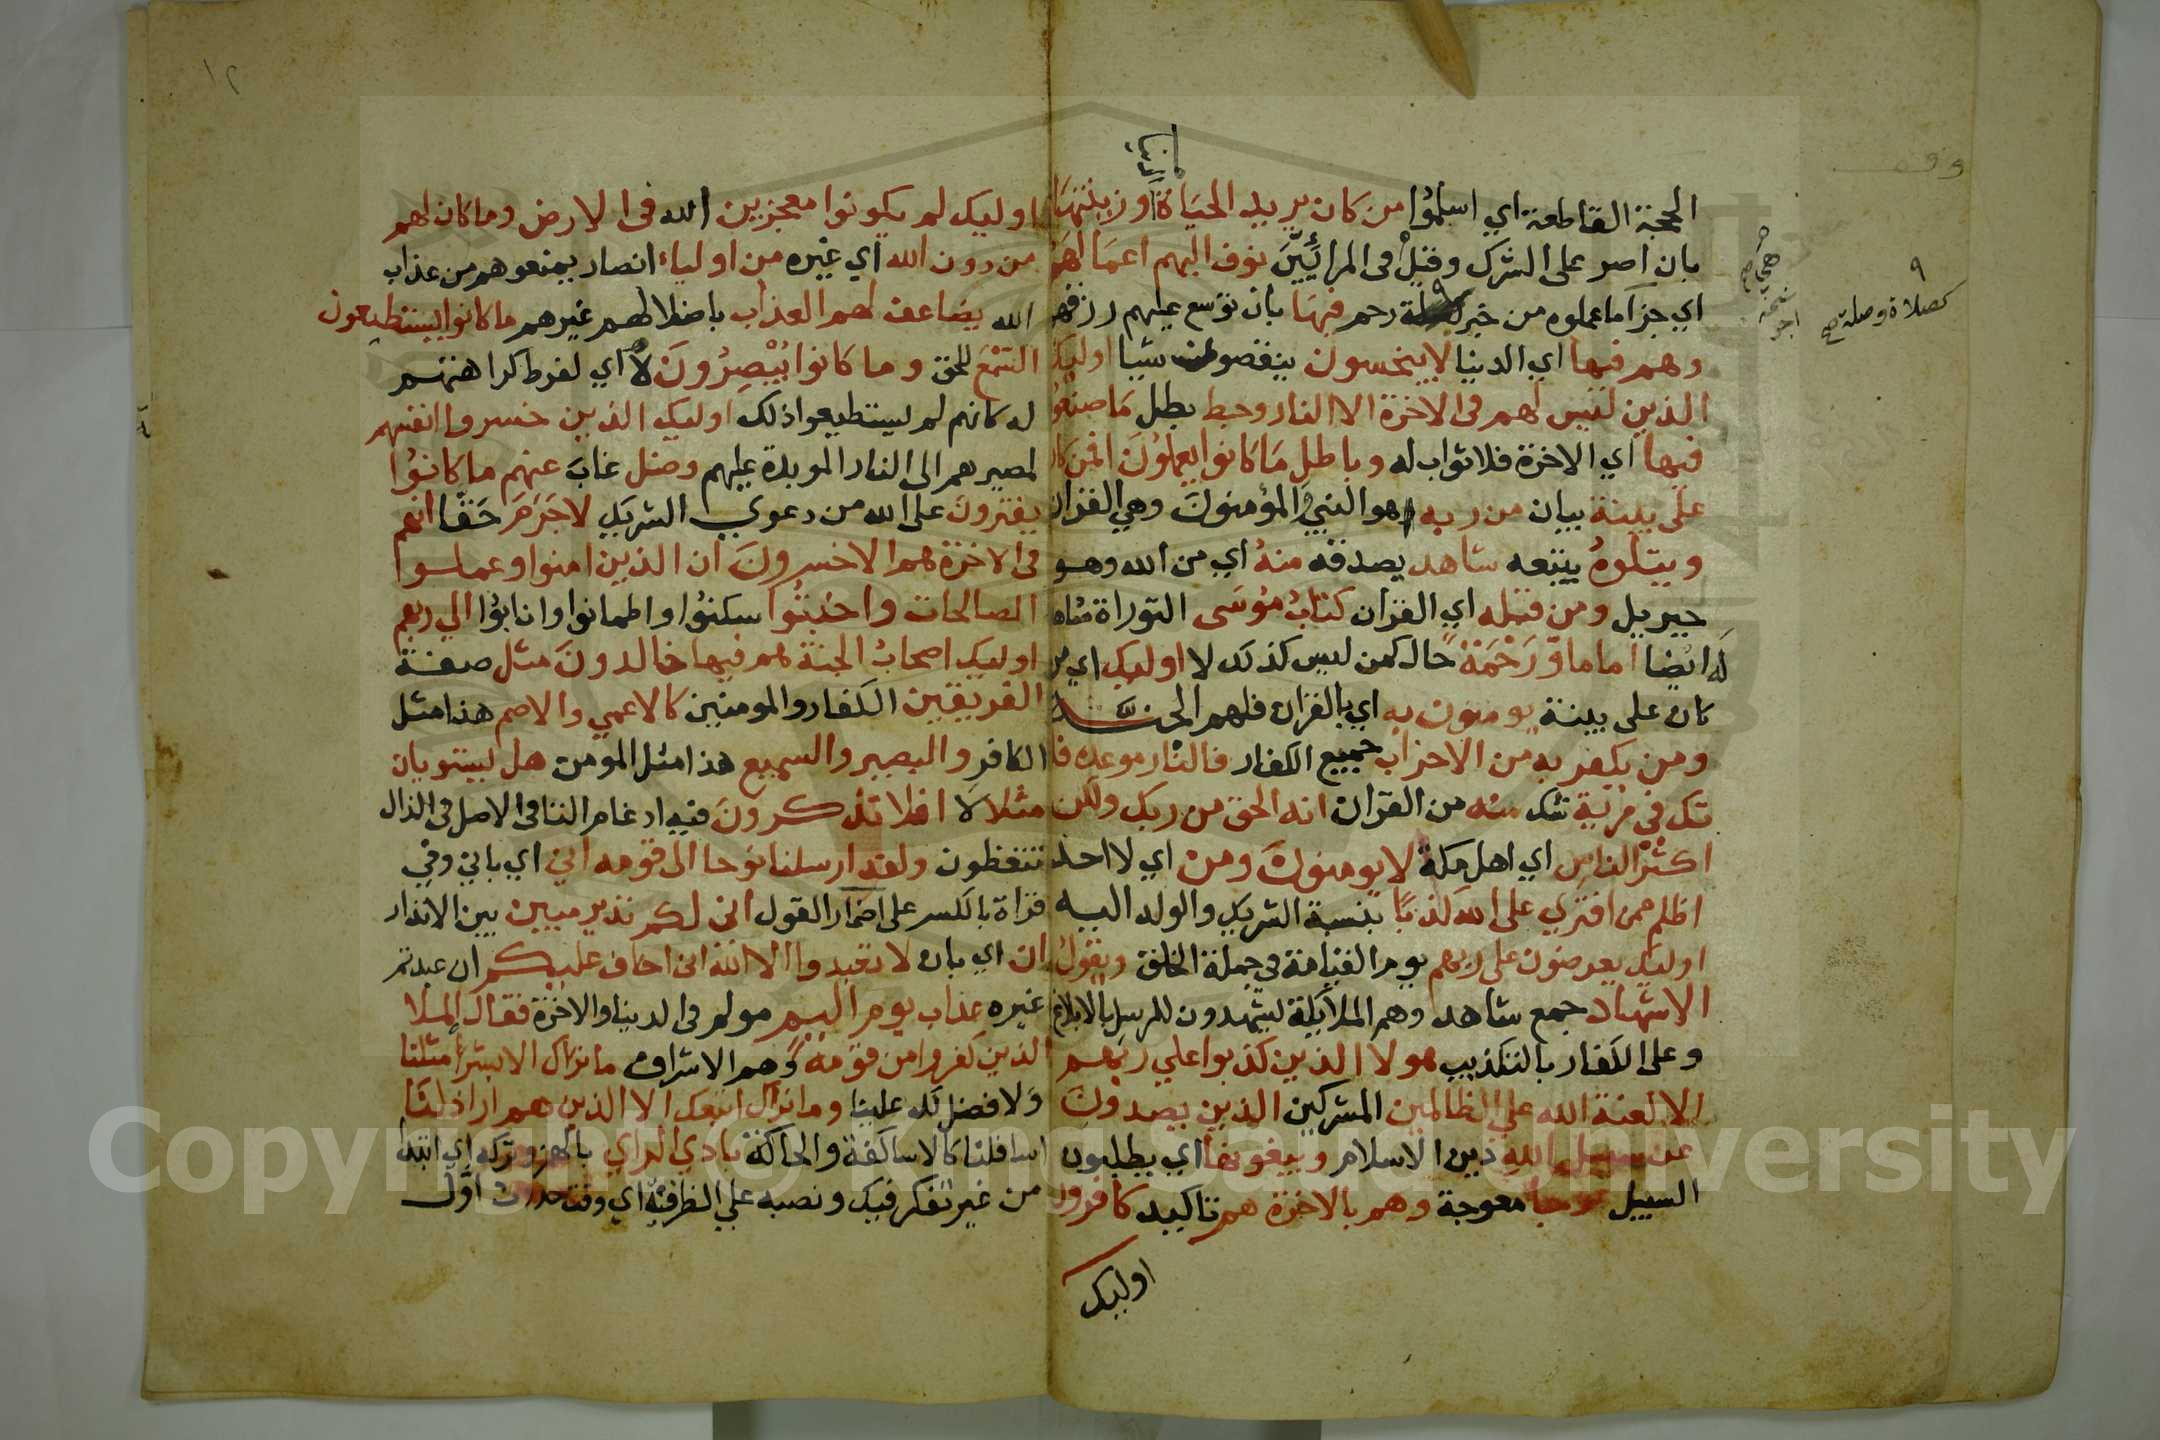 الدنيا
الحجة القاطعة اي اسلموا من كان يريد الحياة وزينتها
بان اصر على الشرك وقيل في المرائيين نوف اليهم اعمالهم
اي جزا ما عملوه من خير كصلة رحم فيها بان نوسع عليهم رزقهم
وهم فيها اي الدنيا لا يبخسون ينقصون شيا اوليك
الذين ليس لهم في الاخرة الا النار وحبط بطل ما صنعوا
فيها اي الاخرة فلا ثواب له وباطل ما كانوا يعملون افمن كان
على بينة بيان من ربه هو النبي والمؤمنون وهي القران
ويتلوه يتبعه شاهد يصدقه منه اي من الله وهو
جبريل ومن قبله اي القران كتاب موسى التوراة شاهد
له ايضا اماما ورحمة حال كمن ليس كذلك لا اوليك اي من
كان على بينة يومنون به اي بالقران فلهم الجنة
ومن يكفر به من الاحزاب جميع الكفار فالنار موعده فلا
تك في مرية شك منه من القران انه الحق من ربك ولكن
اكثر الناس اي اهل مكة لا يومنون ومن اي لا احد
اظلم ممن افترى على الله كذبا بنسبة الشريك والولد اليه
اوليك يعرضون على ربهم يوم القيامة في جملة الخلق ويقول
الاشهاد جمع شاهد وهم الملايكة يشهدون للرسل بالابلاغ
وعلى الكفار بالتكذيب هولا الذين كذبوا على ربهم
الا لعنة الله على الظالمين المشركين الذين يصدون
عن سبيل الله دين الاسلام ويبغونها اي يطلبون
السبيل عوجا معوجة وهم بالاخرة هم تاكيد كافرون
اوليك
كصلاة وصلة صح
١٢
اوليك لم يكونوا معجزين الله في الارض وما كان لهم
من دون الله اي غيره من اولياء انصار يمنعوهم من عذاب
الله يضاعف لهم العذاب باضلالهم غيرهم ما كانوا يستطيعون
السمع للحق وما كانوا يبصرون ه اي لفرط كراهتهم
له كانهم لم يستطيعوا ذلك اوليك الذين خسروا انفسهم
لمصيرهم الى النار الموبدة عليهم وضل غاب عنهم ما كانوا
يفترون على الله من دعوى الشريك لا جرم حقا انهم
في الاخرة هم الاخسرون ان الذين امنوا وعملوا
الصالحات واخبتوا سكنوا واطمانوا وانابوا الى ربهم
اوليك اصحاب الجنة هم فيها خالدون مثل صفة
الفريقين الكفار والمومنين كالاعمى والاصم هذا مثل
الكافر والبصير والسميع هذا مثل المومن هل يستويان
مثلا لا افلا تذكرون فيه ادغام التا في الاصل في الذال
تتعظون ولقد ارسلنا نوحا الى قومه اني اي باني وفي
قراة بالكسر على اضمار القول اني لكم نذير مبين بين الانذار
ان اي بان لا تعبدوا الا الله اني اخاف عليكم ان عبدتم
غيره عذاب يوم اليم مولم في الدنيا والاخرة فقال الملا
الذين كفروا من قومه وهم الاشراف ما نراك الا بشرا مثلنا
ولا فضل لك علينا وما نراك اتبعك الا الذين هم اراذلنا
اسافلنا كالاساكفة والحاكة بادي الراي بالهمز وتركه اي ابتدا
من غير تفكر فيك ونصبه على الظرفية اي وقت حدوث اول